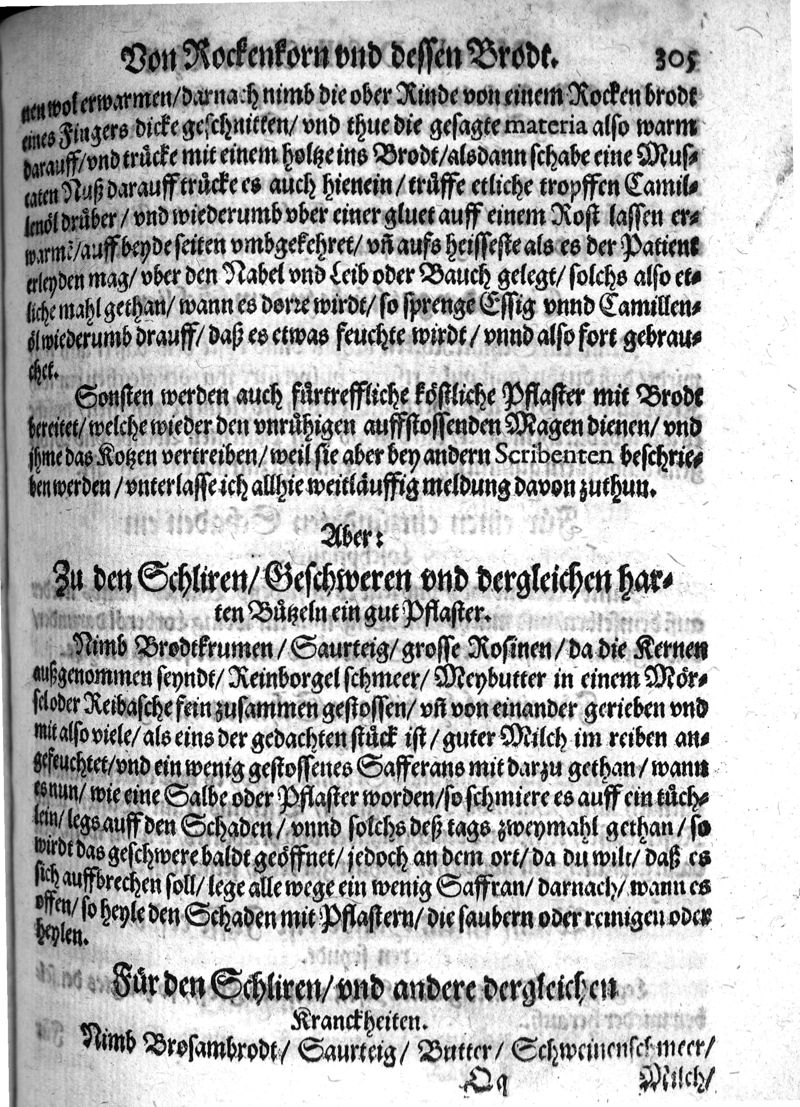 Von Rockenkorn vnd dessen Brodt. 305
nen wol erwarmen/ darnach nimb die ober Rinde von einem Rocken brodt
eines Fingers dicke geschnitten/ vnd thue die gesagte materia also warm
darauff/ vnd trücke mit einem holtze ins Brodt/ alsdann schabe eine Mus-
caten Nuß darauff trücke es auch hienein/ trüffe etliche tropffen Camil-
lenöl drüber/ vnd wiederumb vber einer gluet auff einem Rost lassen er-
warmē/ auff beyde seiten vmbgekehret/ vñ aufs heisseste als es der Patient
erleyden mag/ vber den Nabel vnd Leib oder Bauch gelegt/ solchs also et-
liche mahl gethan/ wann es dorre wirdt/ so sprenge Essig vnnd Camillen-
öl wiederumb drauff/ daß es etwas feuchte wirdt/ vnnd also fort gebrau-
chet.
Sonsten werden auch fürtreffliche köstliche Pflaster mit Brodt
bereitet/ welche wieder den vnrühigen auffstossenden Magen dienen/ vnd
jhme das Kotzen vertreiben/ weil sie aber bey andern Scribenten beschrie-
ben werden/ vnterlasse ich allhie weitläuffig meldung davon zuthun.
Aber:
Zu den Schliren/ Geschweren vnd dergleichen har-
ten Bützeln ein gut Pflaster.
Nimb Brodtkrumen/ Saurteig/ grosse Rosinen/ da die Kernen
außgenommen seyndt/ Reinborgel schmeer/ Meybutter in einem Mör-
sel oder Reibasche fein zusammen gestossen/ vñ von einander gerieben vnd
mit also viele/ als eins der gedachten stück ist/ guter Milch im reiben an-
gefeuchtet/ vnd ein wenig gestossenes Safferans mit darzu gethan/ wann
es nun/ wie eine Salbe oder Pflaster worden/ so schmiere es auff ein tüch-
lein/ legs auff den Schaden/ vnnd solchs deß tags zweymahl gethan/ so
wirdt das geschwere baldt geöffnet/ jedoch an dem ort/ da du wilt/ daß es
sich auffbrechen soll/ lege alle wege ein wenig Saffran/ darnach/ wann es
offen/ so heyle den Schaden mit Pflastern/ die saubern oder reinigen oder
heylen.
Für den Schliren/ vnd andere dergleichen
Kranckheiten.
Nimb Brosambrodt/ Saurteig/ Butter/ Schweinenschmeer/
Qq Milch/